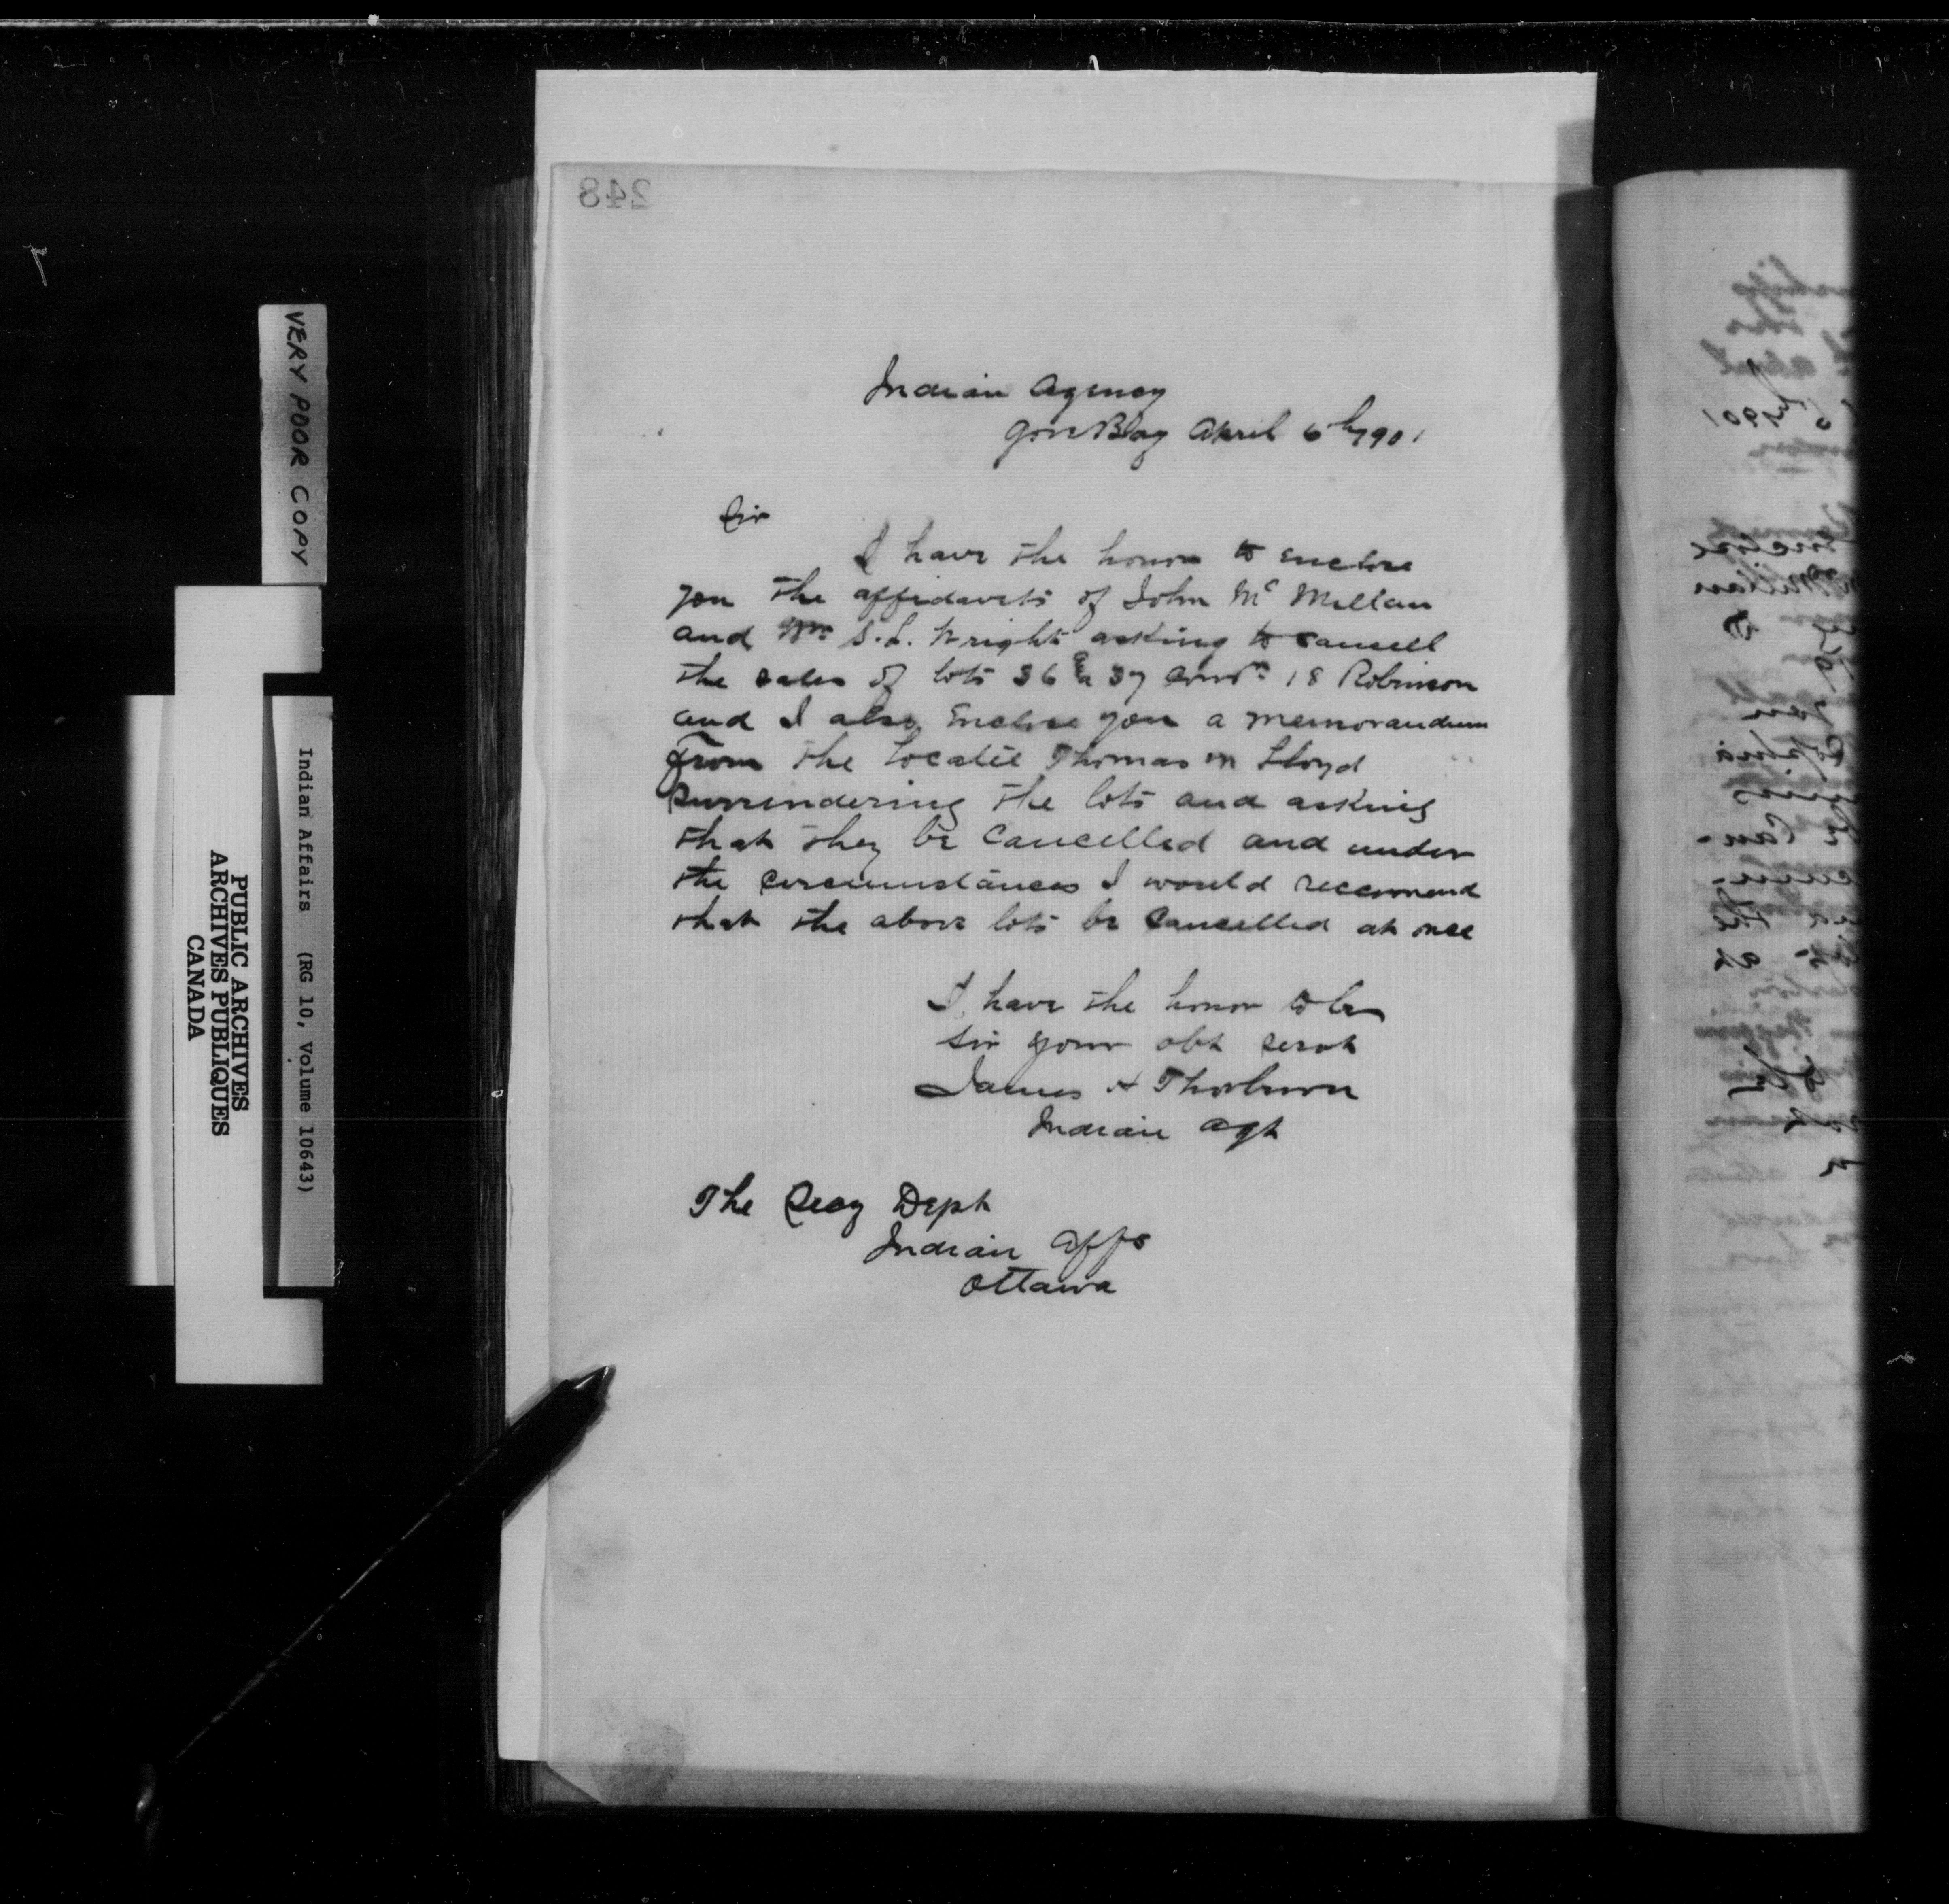 248
Indian Agency
Gore Bay April 6th 1901
Sir
I have the honor to enclose
you the affidavits of John Mc Millan
and Wm S. L. Wright asking to cancell
the sales of lots 36 & 37 Con 18 Robinson
and I also Enclose you a memorandum
From the Locatee Thomas M Lloyd
surrendering the lots and asking
that they be cancelled and under
the circumstances I would reccomend
that the above lots be cancelled at once
I have the honor to be
Sir your obt servt
James H Thorburn
Indian Agt
The Secy Dept
Indian Affs
Ottawa
VERY POOR COPY
Indian Affairs (RG 10, Volume 10643)
PUBLIC ARCHIVES
ARCHIVES PUBLIQUES
CANADA